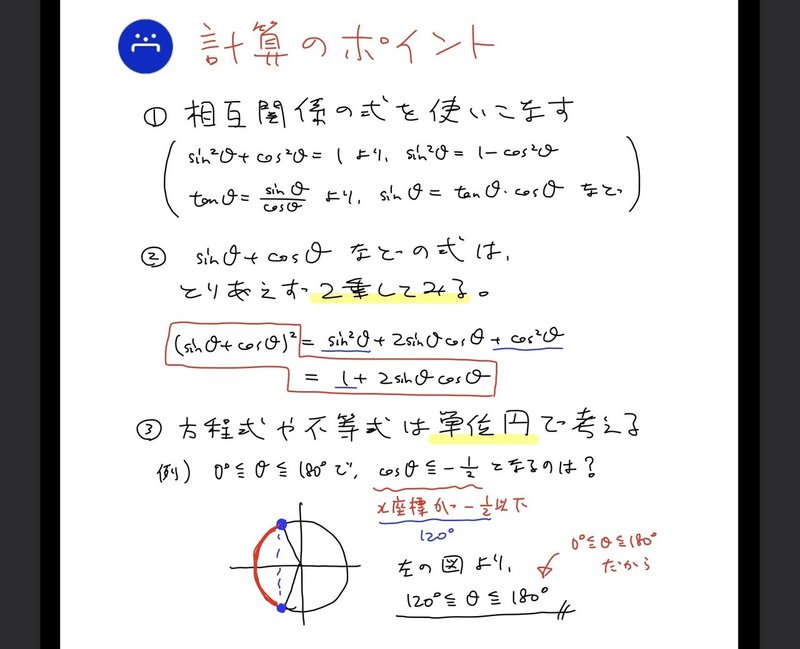 計算のポイント
① 相互関係の式を使いこなす
sin²θ+cos²θ=1 より、sin²θ=1-cos²θ
tanθ=sinθ/cosθ より、sinθ=tanθ・cosθ など
② sinθ+cosθ などの式は、
とりあえず2乗してみる。
(sinθ+cosθ)²=sin²θ+2sinθcosθ+cos²θ
=1+2sinθcosθ
③ 方程式や不等式は単位円で考える
例) 0°≦θ≦180°で、cosθ≦-1/2 となるのは?
x座標が-1/2以下
120°
左の図より、
0°≦θ≦180°
だから
120°≦θ≦180°